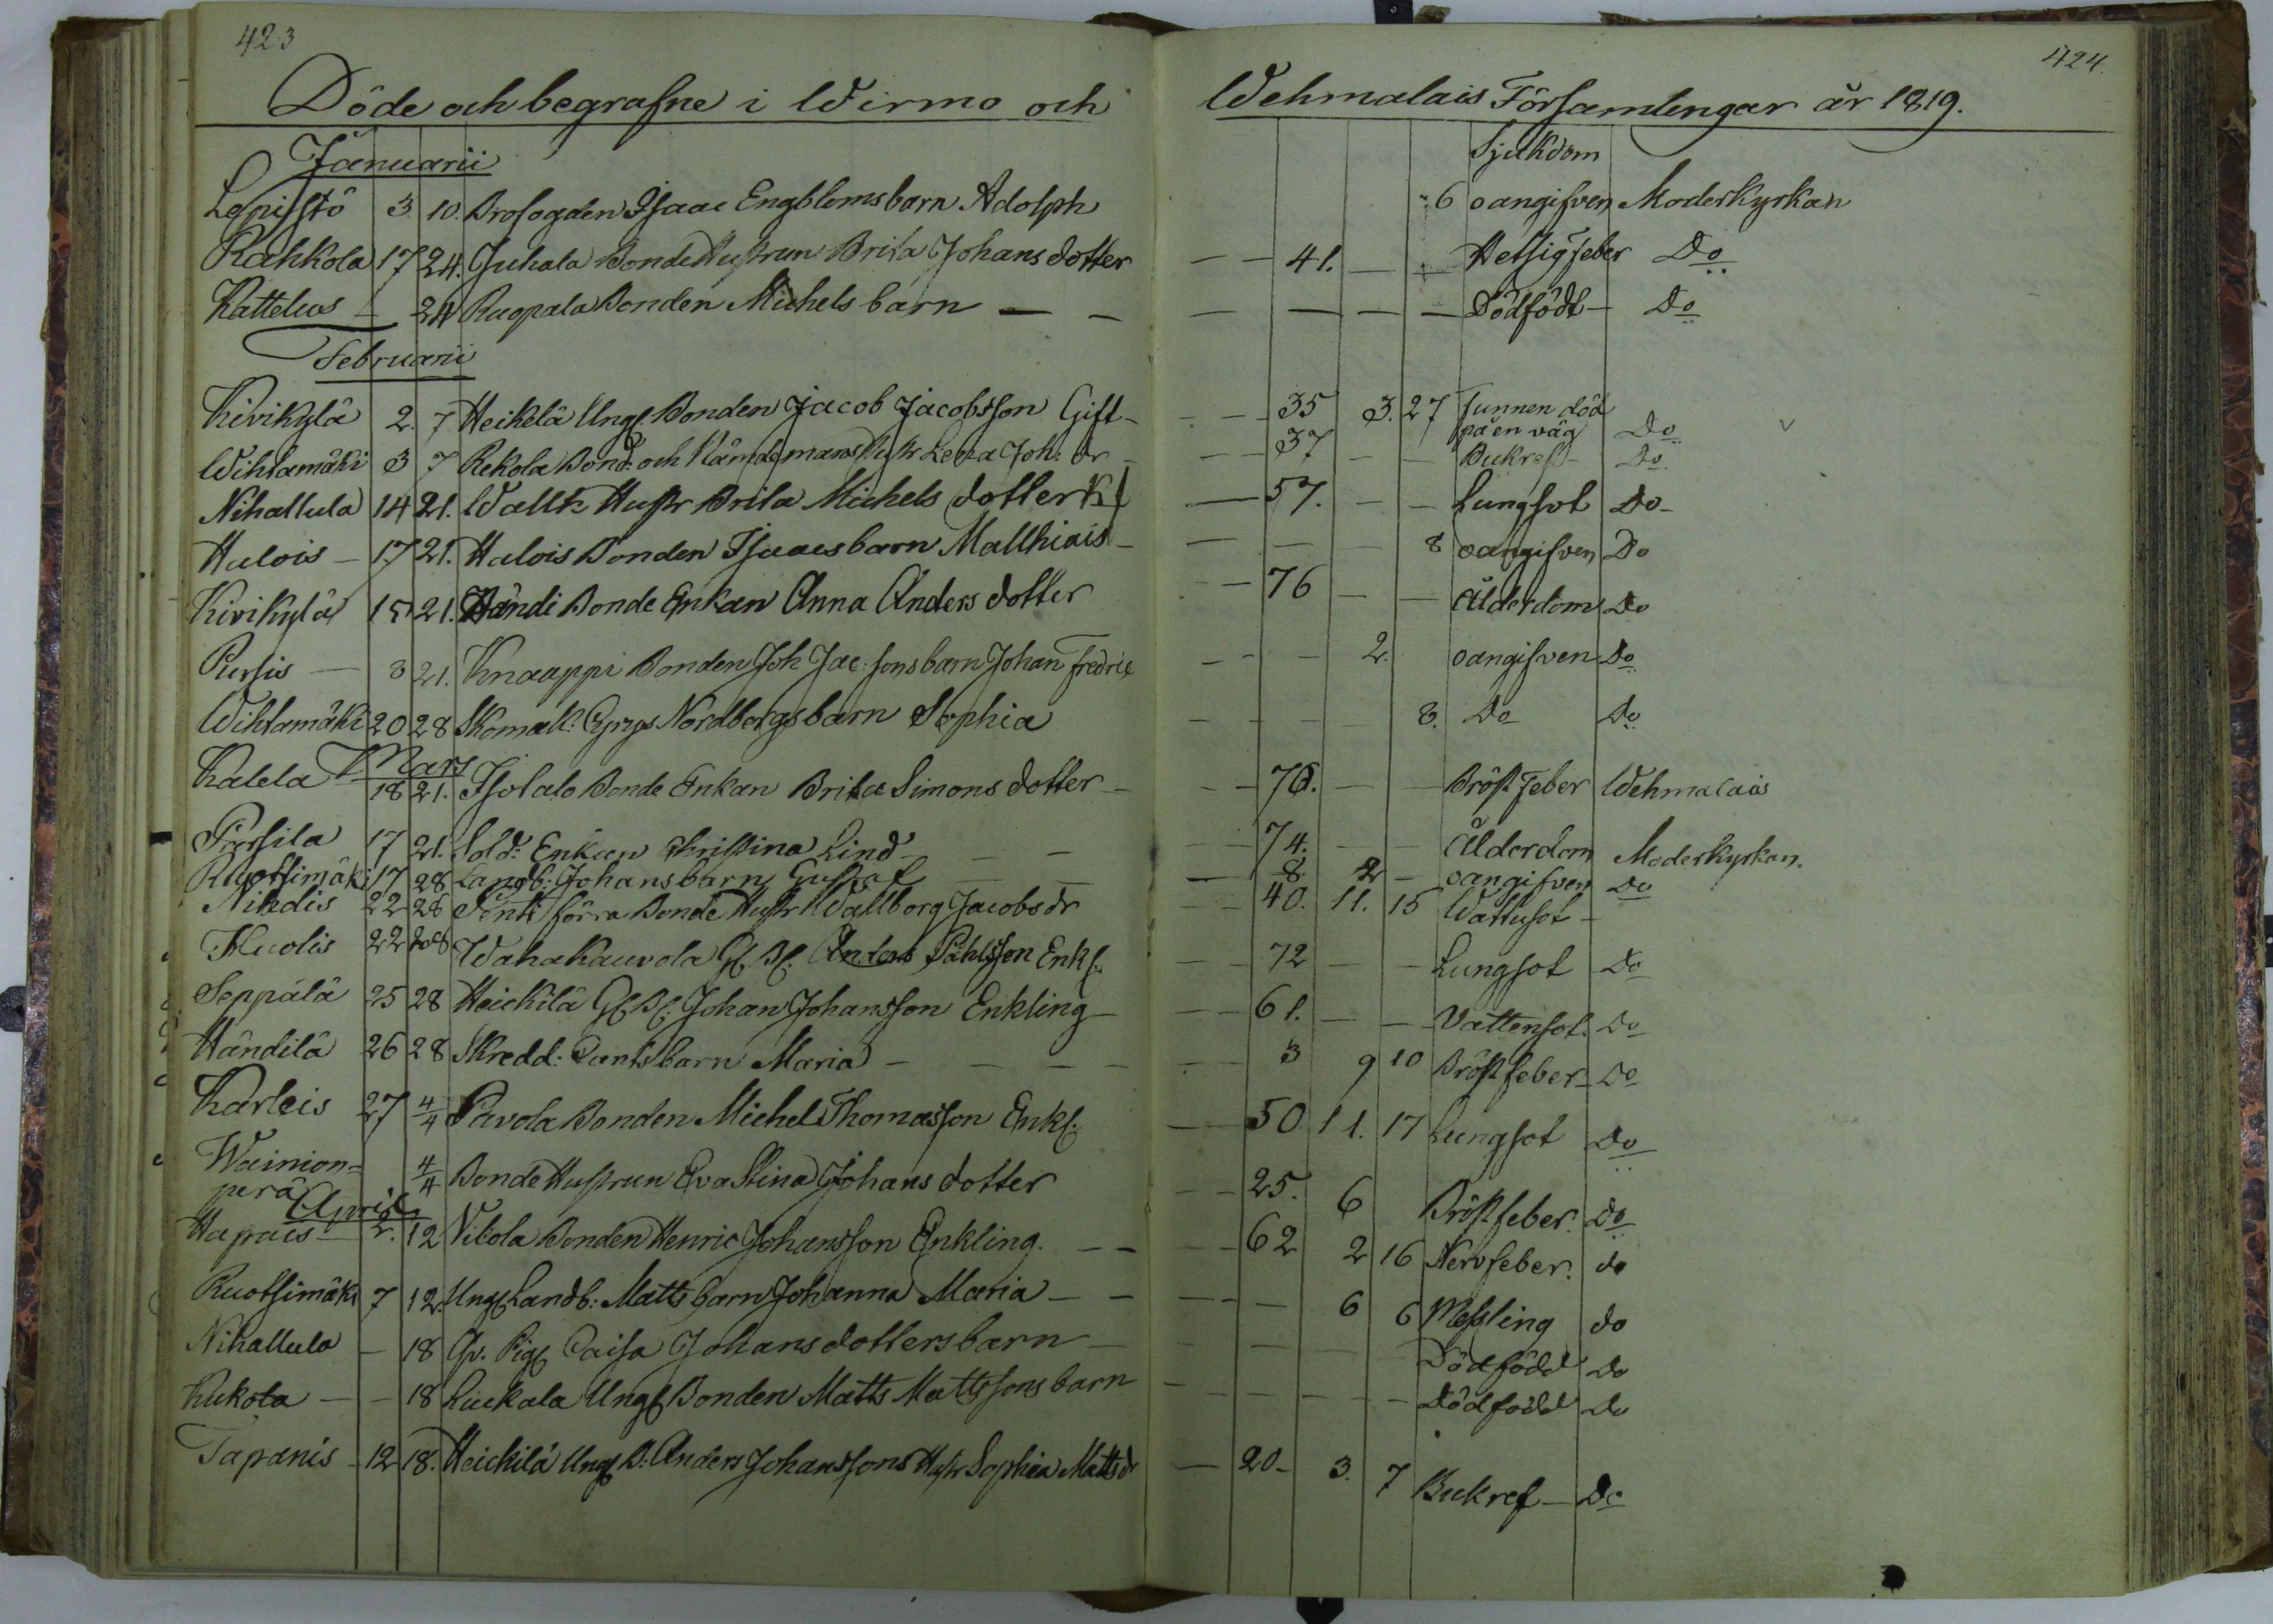 423
Döde och begrafne i Wirmo och
Januarii
Lepistö 3. 10. Brofogden Isaac Engbloms barn Adolph
Rahkola 17 24. Juhala Bonde Hustrun Brita Johans dotter
Kattelus – 24 Ruopala Bonden Michels barn — –
Februarii
Kivikylä 2. 7 Heikelä Ung. Bonden Jacob Jacobsson Gift –
Wihtamäki 3 7 Rekola Bond: och Nämdemans Hustr Lena Joh: dr –
Nihattula 14 21. Wallk Hustr Brita Michels dotter
Hulois – 17 21. Hulois Bonden Isaacs barn Matthias –
Kivikylä 15 21. Händi Bonde Enkan Anna Anders dotter
Pursis — 8 21. Knaappi Bonden Joh Jac: sons barn Johan Fredric
Wihtamäki 20 28 Skomak: Nordbergs barn Sophia
Mars
Kalela 18 21. Isotalo Bonde Enkan Brita Simons dotter –
Pursila 17 21. Sold: Enkan Christina Lind – – –
Ruotsimäki 17 28 Landb: Johans barn Gustaf – –
Nihdis 22 28 Pentti förra Bonde Hustr Wallborg Jacobs dr
Huolis 22 28 Wahakauvola Anders Påhlsson Enkl:
Seppälä 25 28 Heickilä Johan Johansson Enkling –
Händilä 26 28 Skredd: barn Maria – – – –
Karleis 27 4/4 Pavola Bonden Michel Thomasson Enkl.
Wainion=
perä 4/4 Bonde Hustrun Eva Stina Johans dotter
April
Hapais – 2. 12 Vilola Bonden Henric Johansson Enkling. – –
Ruotsimäki 7 12 Ung Landb: Matts barn Johanna Maria – –
Nihattula – 18 Pig Caisa Johans dotters barn –
Kukola – – 18 Luckala Ung Bonden Matts Mattssons barn
Tapanis – 12 18. Heickilä Ung B. Anders Johanssons Hustr Sophia Matts dr
424.
Wehmalais Församlingar år 1819.
Sjukdom
6 oangifven Moderkyrkan
– – 41. – – Hetsig feber Do
– – – – Dödfödt – Do
– – 35 3. 27 funnen död
på en väg Do
– – 37 – – Bukref – Do
– 57. – – Lungsot Do –
– – – 8 oangifven Do
– – 76 – – Ålderdom Do
– – – 2. oangifven Do
– – – 8. Do Do
– – 76. – – Bröst Feber Wehmalais
– – 74. – – Ålderdom Moderkyrkan.
– 8 2 – oangifven Do
– – 40. 11. 15 Wattusot –
– – 72 – – Lungsot Do
– – 61. – – Vattensot. Do
– – 3 9 10 Bröstfeber – Do
– – 50. 11. 17 Lungsot Do
– – 25. 6 Bröstfeber. Do
– – 62 2 16 Nervfeber. do
– – – 6 6 Messling do
– – – Dödfödd do
– – – – Dödfödd Do
– 20 – 3. 7 Bukref – Do